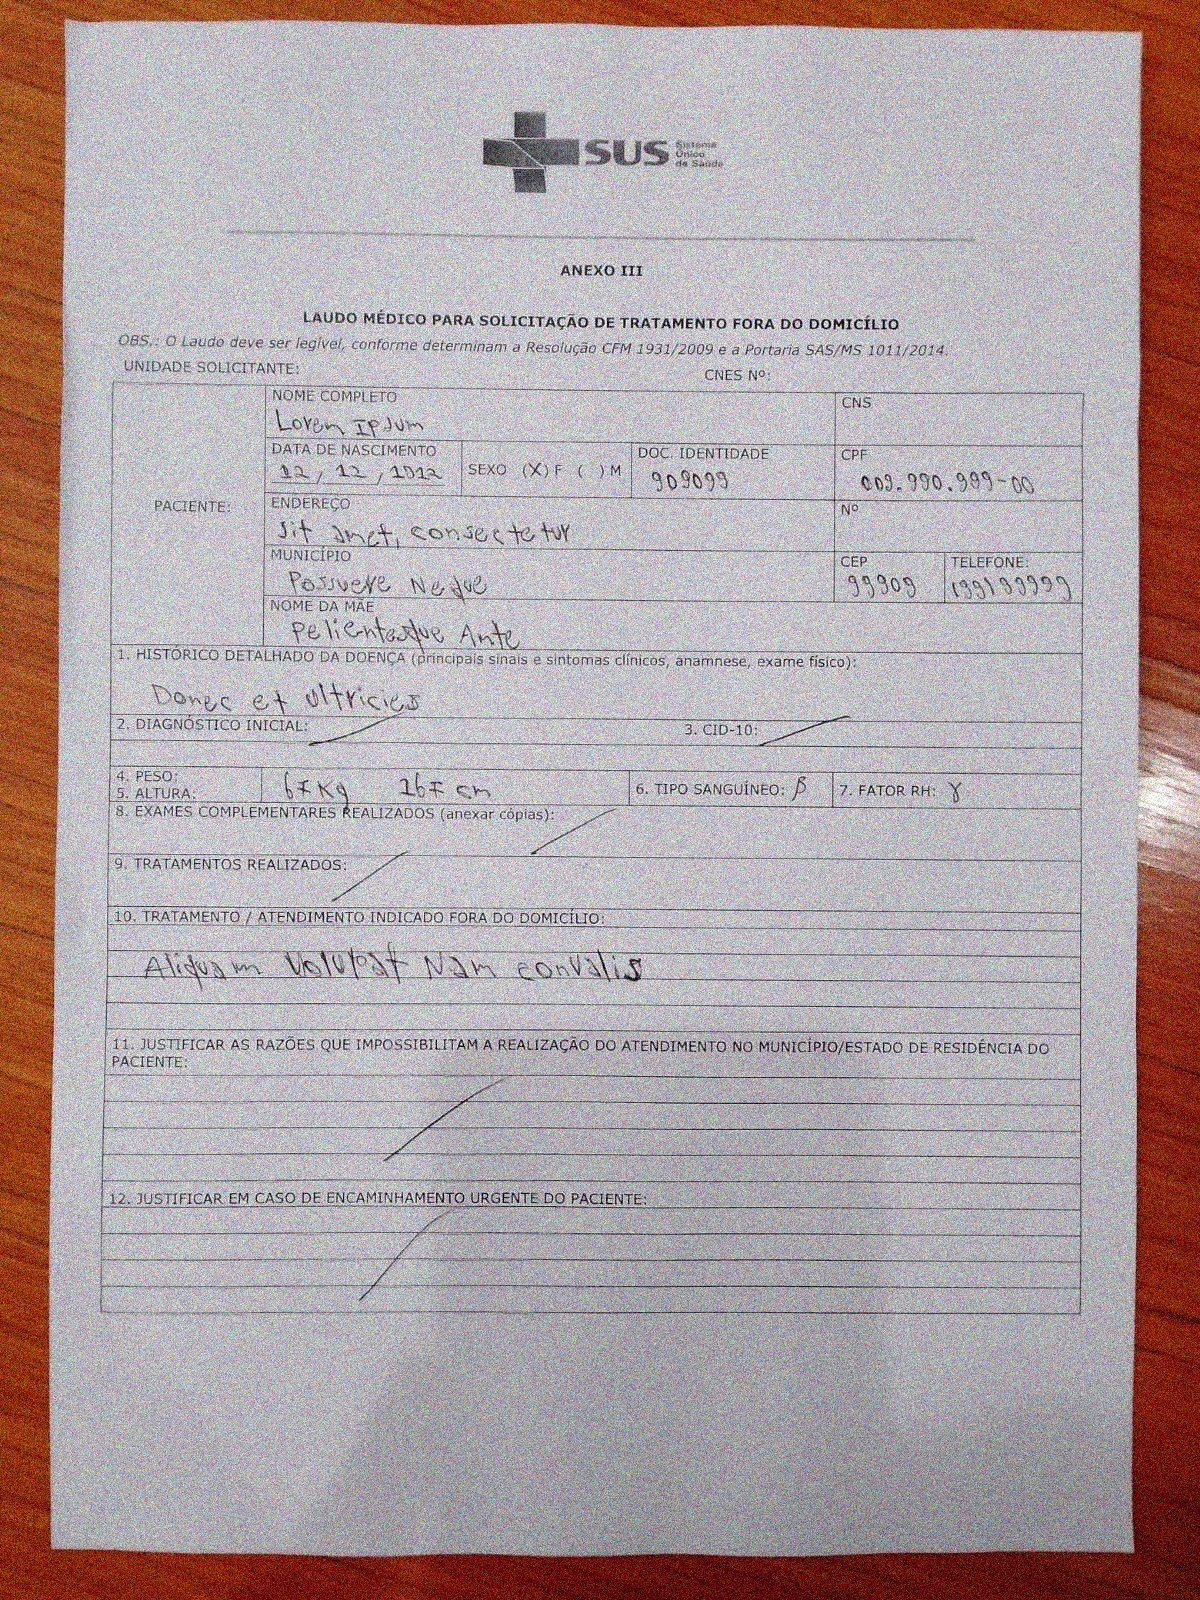 SUS Sistema
Único
de Saúde
ANEXO III
LAUDO MÉDICO PARA SOLICITAÇÃO DE TRATAMENTO FORA DO DOMICÍLIO
OBS.: O Laudo deve ser legível, conforme determinam a Resolução CFM 1931/2009 e a Portaria SAS/MS 1011/2014.
UNIDADE SOLICITANTE: CNES Nº:
PACIENTE:
NOME COMPLETO CNS
Lorem Ipsum
DATA DE NASCIMENTO SEXO (X) F ( ) M DOC. IDENTIDADE CPF
12/12/1912 909099 009.990.999-00
ENDEREÇO Nº
sit amet, consectetur
MUNICÍPIO CEP TELEFONE:
Possuere Neque 99909 199199999
NOME DA MÃE
Pelientesque Ante
1. HISTÓRICO DETALHADO DA DOENÇA (principais sinais e sintomas clínicos, anamnese, exame físico):
Donec et ultricies
2. DIAGNÓSTICO INICIAL: 3. CID-10:
4. PESO:
5. ALTURA: 67Kg 167cm 6. TIPO SANGUÍNEO: β 7. FATOR RH: γ
8. EXAMES COMPLEMENTARES REALIZADOS (anexar cópias):
9. TRATAMENTOS REALIZADOS:
10. TRATAMENTO / ATENDIMENTO INDICADO FORA DO DOMICÍLIO:
Aliquam Volutpat Nam convalis
11. JUSTIFICAR AS RAZÕES QUE IMPOSSIBILITAM A REALIZAÇÃO DO ATENDIMENTO NO MUNICÍPIO/ESTADO DE RESIDÊNCIA DO
PACIENTE:
12. JUSTIFICAR EM CASO DE ENCAMINHAMENTO URGENTE DO PACIENTE: